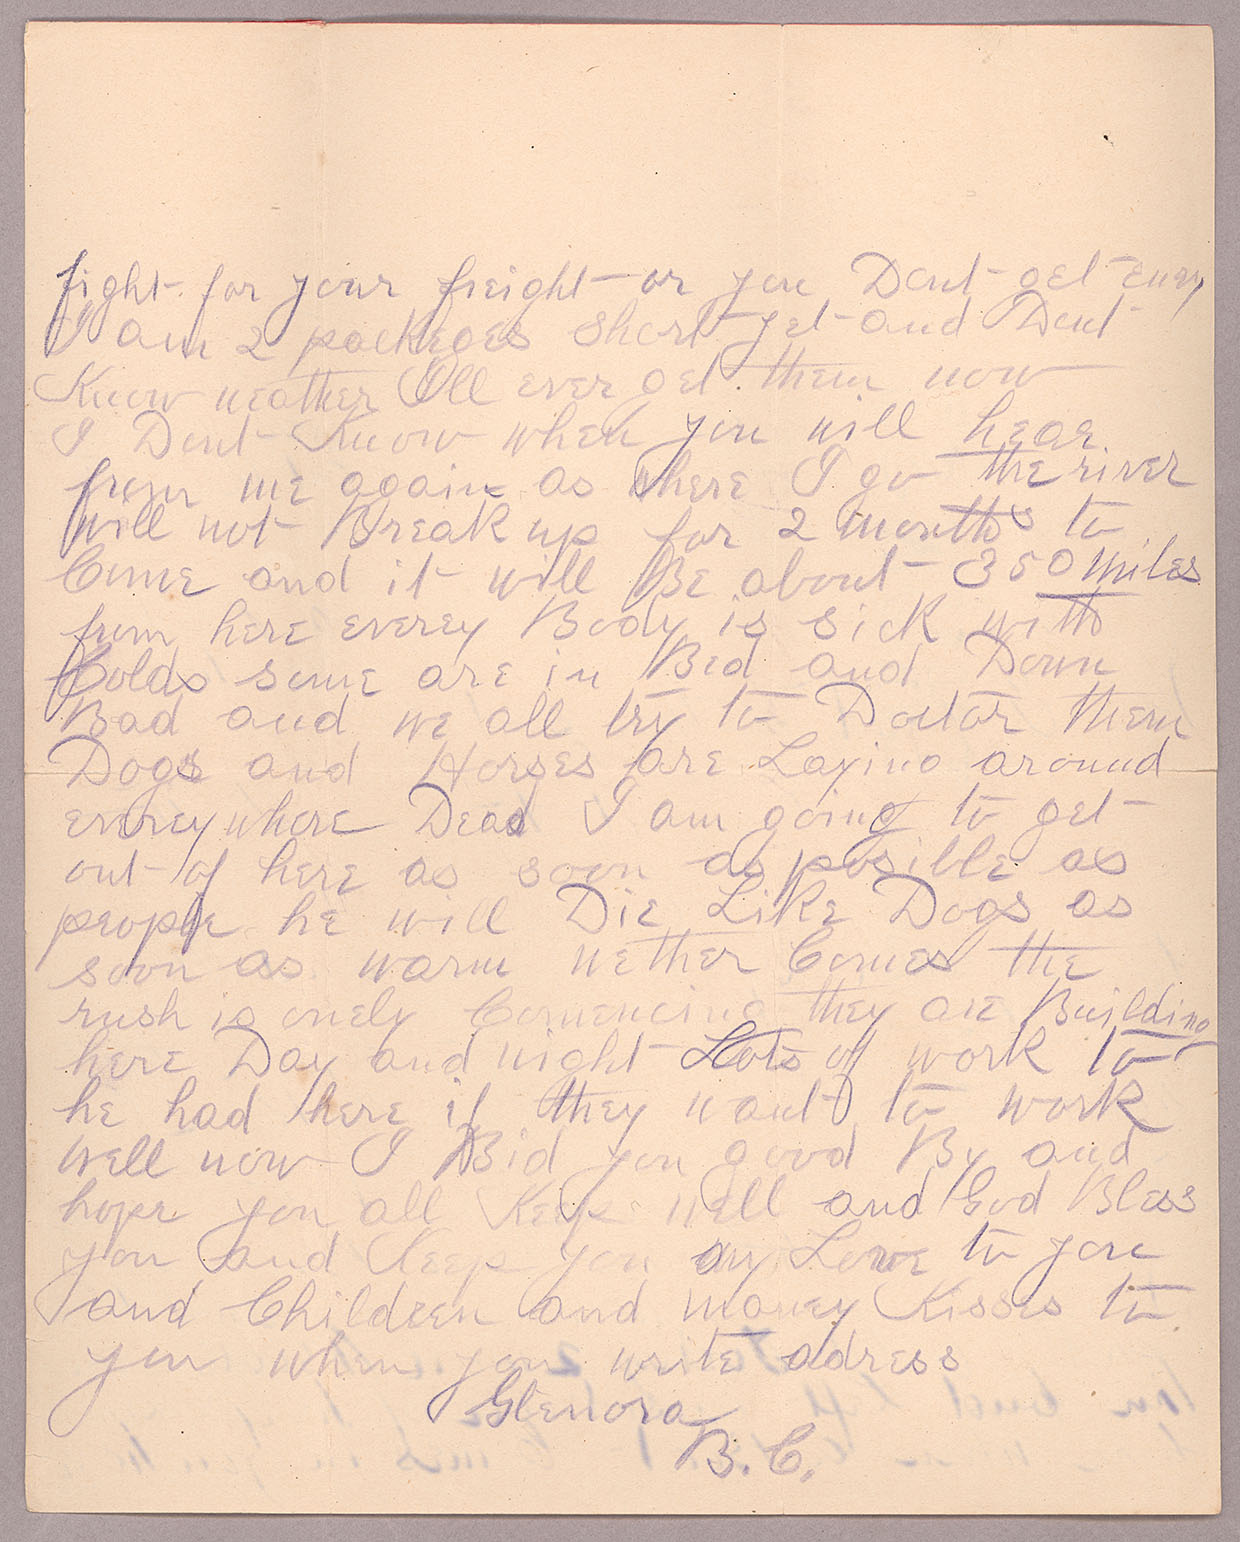 fight for your freight or you Dont get eny
I am 2 packeges short yet and Dont
Know neather Ill ever get them now
I Dont Know when you will hear
from me again as where I go the river
will not Break up for 2 months to
Come and it will Be about 350 miles
from here everey Body is sick with
Colds some are in Bed and Down
Bad and we all try to Doctor them
Dogs and Horses are Laying around
everey where Dead I am going to get
out of here as soon as posible as
people he will Die Like Dogs as
soon as warm wether Comes the
rush is onely Comencing they are Building
here Day and night Lots of work to
he had here if they want to work
well now I Bid you good By and
hope you all Keep well and God Bless
you and Keep you my Love to you
and Children and maney Kisses to
you when you write adress
Glenora
B.C.